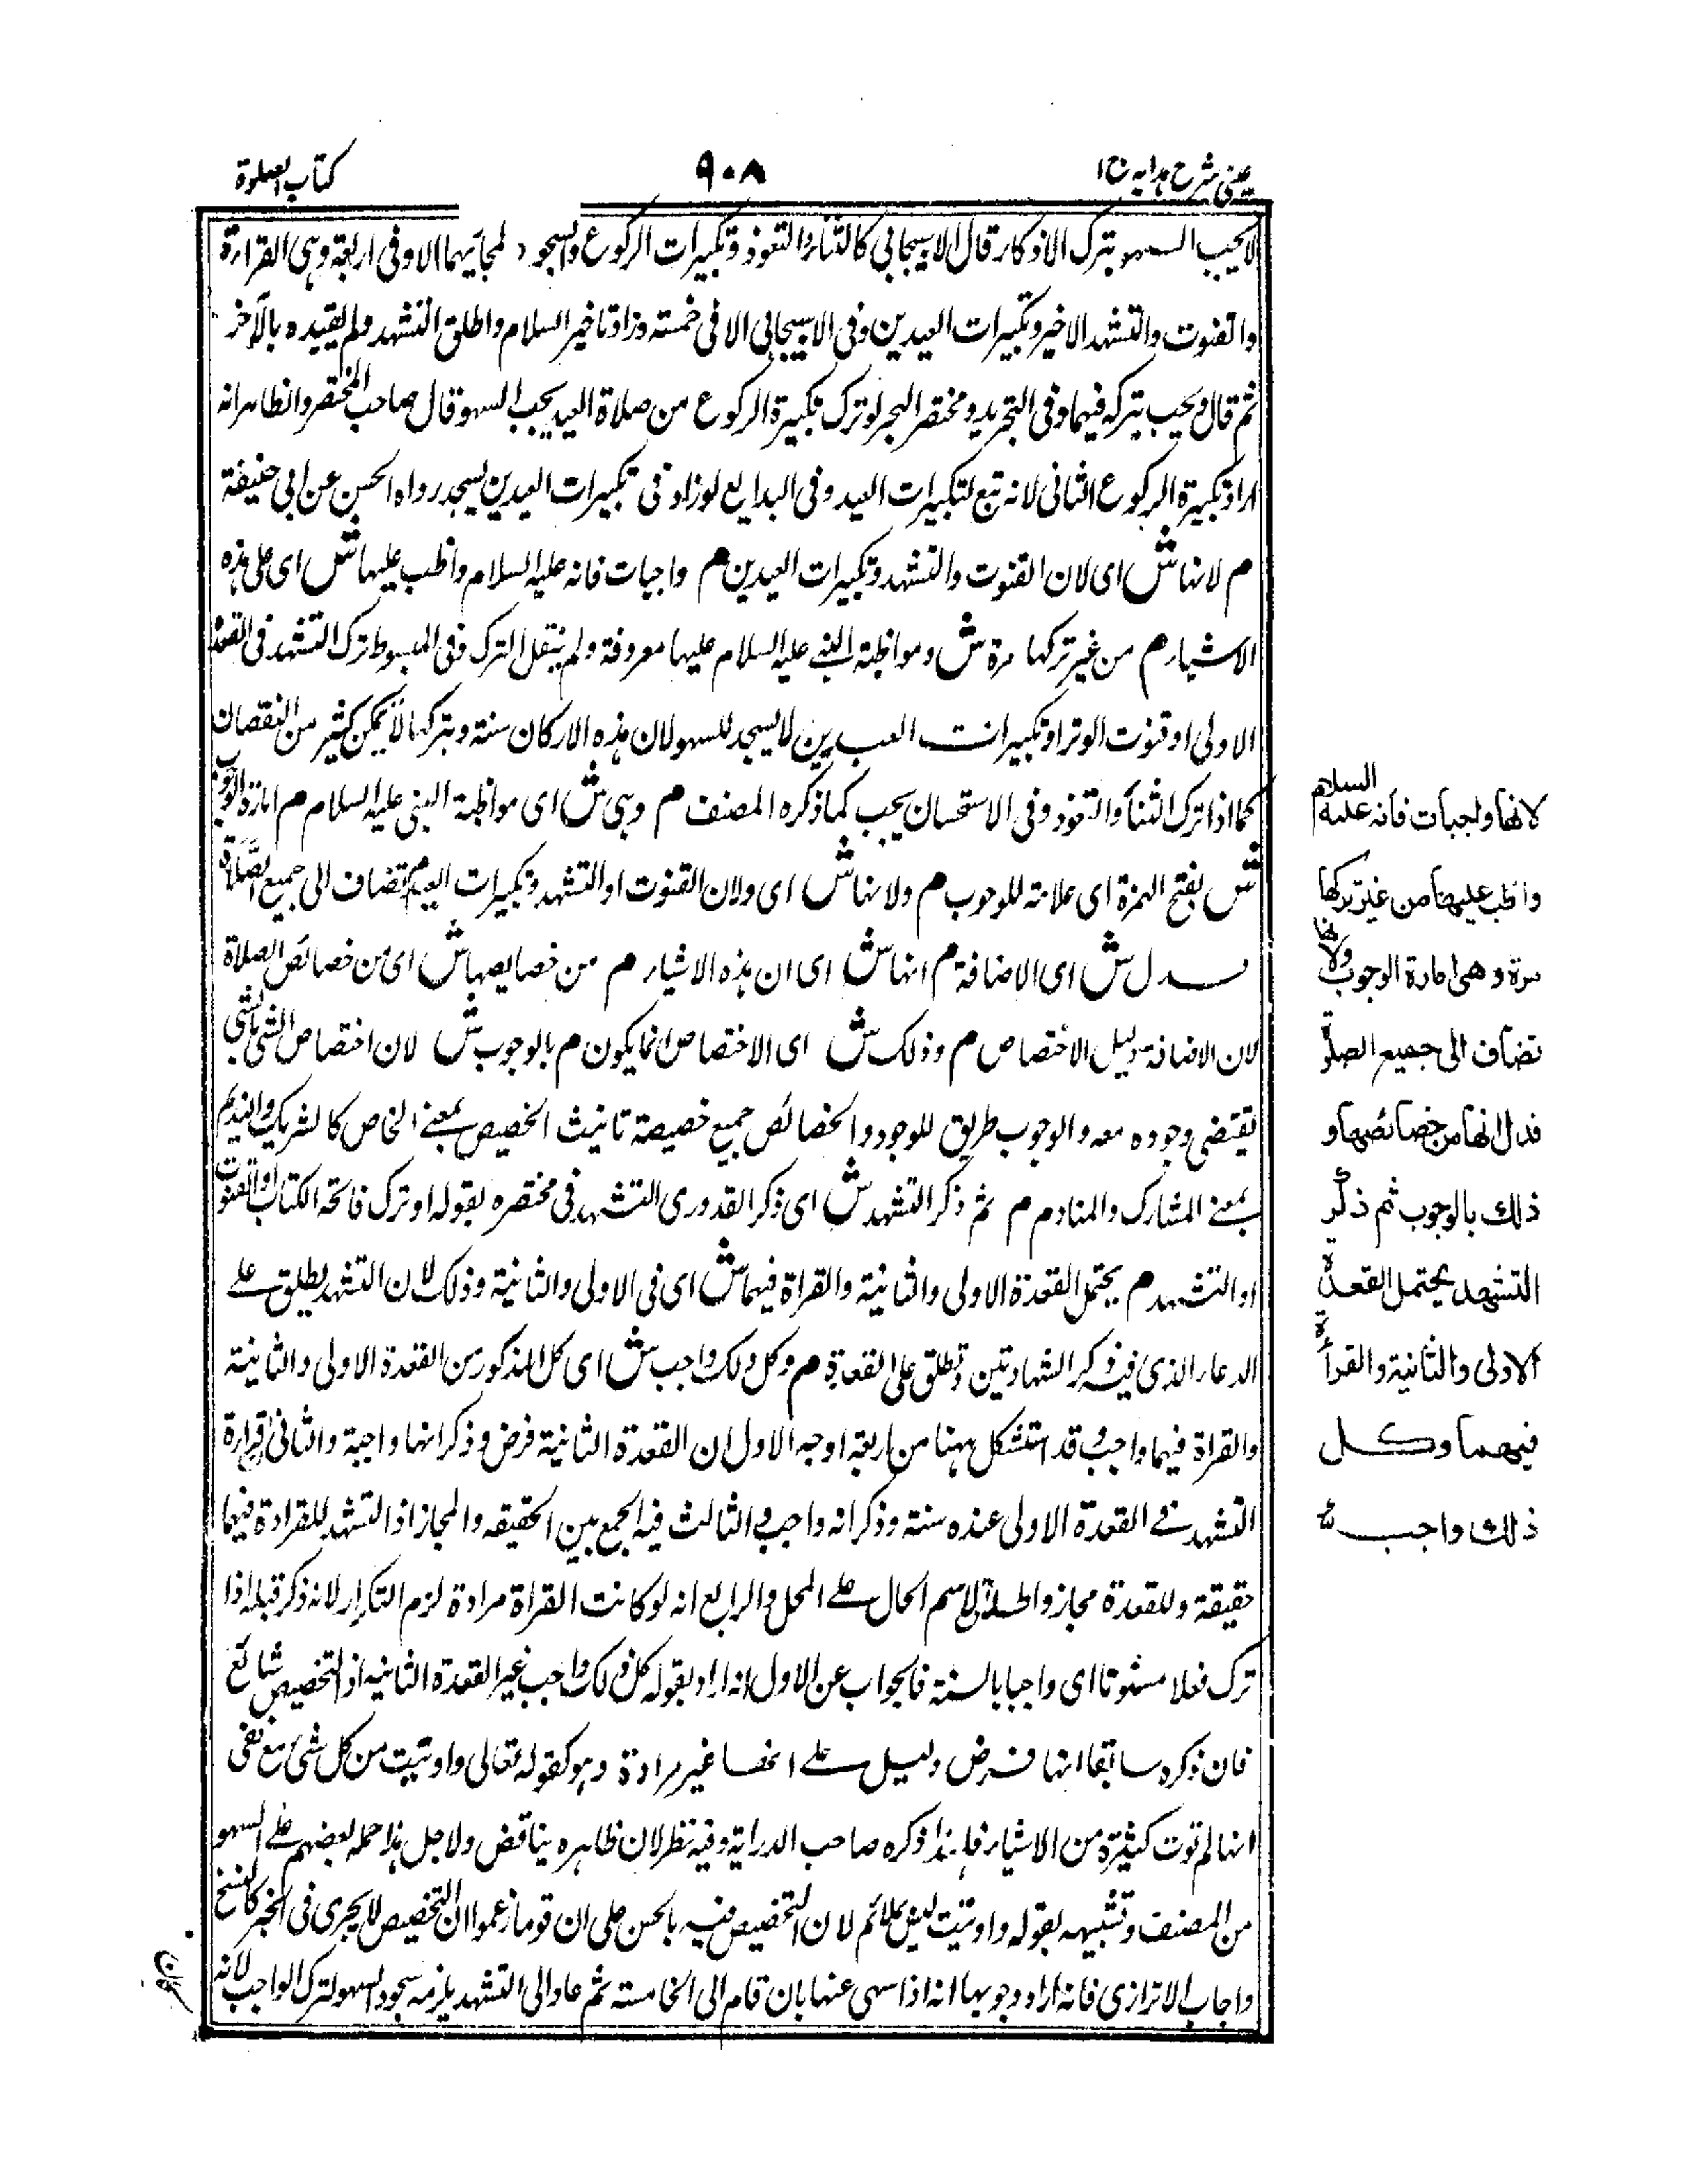 عینی شرح هدایه ج ۱
۹۰۸
کتاب الصلوة
لا یجب السهو بترك الاذكار قال الاسبیجابی كالثناء والتعوذ وتكبیرات الركوع والسجود الا فی اربعة وهی القراءة
والقنوت والتشهد الاخیر وتكبیرات العیدین وفی الاسبیجابی الا فی خمسة وزاد تاخیر السلام واطلق التشهد ولم یقیده بالآخر
ثم قال ویجب بتركه فیهما وفی التجرید ومختصر البحر لو ترك تكبیرة الركوع من صلاة العید یجب السهو قال صاحب المختصر والظاهر انه
اراد تكبیرة الركوع الثانی لانه تبع لتكبیرات العید وفی البدایع لو زاد فی تكبیرات العیدین یسجد رواه الحسن عن ابی حنیفة
م لانها ش ای لان القنوت والتشهد وتكبیرات العیدین م واجبات فانه علیه السلام واظب علیها ش ای علی هذه
الاشیاء م من غیر تركها مرة ش ومواظبة النبی علیه السلام علیها معروفة ولم ینقل الترك وفی المبسوط ترك التشهد فی القعدة
الاولی او قنوت الوتر او تكبیرات العیدین لا یسجد للسهو لان هذه الاركان سنة وبتركها لا یمكن كثیر من النقصان
كما اذا ترك الثناء والتعوذ وفی الاستحسان یجب كما ذكره المصنف م وهی ش ای مواظبة النبی علیه السلام م امارة الوجوب
ش بفتح الهمزة ای علامة للوجوب م ولانها ش ای ولان القنوت او التشهد وتكبیرات العید م تضاف الی جمیع الصلاة
فدل ش ای الاضافة م انها ش ای ان هذه الاشیاء م من خصایصها ش ای من خصائص الصلاة
لان الاضافة دلیل الاختصاص م وذلك ش ای الاختصاص انما یكون م بالوجوب ش لان اختصاص الشی بالشی
یقتضی وجوده معه والوجوب طریق للوجود والخصائص جمیع خصیصة تانیث الخصیص بمعنی الخاص كالشریك والندیم
بمعنی المشارك والمنادم م ثم ذكر التشهد ش ای ذكر القدوری التشهد فی مختصره بقوله او ترك فاتحة الكتاب او القنوت
او التشهد م یحتمل القعدة الاولی والثانیة والقراة فیهما ش ای فی الاولی والثانیة وذلك لان التشهد یطلق علی
الدعاء الذی فیه ذكر الشهادتین وتطلق علی القعدة م وكل ذلك واجب ش ای كل المذكور من القعدة الاولی والثانیة
والقراة فیهما واجب وقد استشكل ههنا من اربعة اوجه الاول ان القعدة الثانیة فرض وذكر انها واجبة والثانی قراءة
التشهد فی القعدة الاولی عنده سنة وذكر انه واجب والثالث فیه الجمع بین الحقیقه والمجاز اذ التشهد للقراءة فیهما
حقیقة وللقعدة مجاز واطلاق لاسم الحال علی المحل والرابع انه لو كانت القراة مرادة لزم التكرار لانه ذكر قبله اذا
ترك فعلا مسنونا ای واجبا بالسنة فالجواب عن الاول انه اراد بقوله كل ذلك واجب غیر القعدة الثانیه اذ التخصیص شائع
فان ذكره سابقا انها فرض دلیل علی انها غیر مرادة وهو كقوله تعالی واوتیت من كل شئ مع نفی
انها لم توت كثیرة من الاشیاء فلهذا ذكره صاحب الدرایة وفیه نظر لان ظاهره یناقض ولاجل هذا حمله بعضهم علی السهو
من المصنف وتشبیهه بقوله واوتیت لیس بملائم لان التخصیص فیه بالحس علی ان قوما زعموا ان التخصیص لا یجری فی الخبر كالنسخ
واجاب الاترازی فانه اراد وجوبها انه اذا سهی عنها بان قام الی الخامسة ثم عاد الی التشهد یلزمه سجود السهو لترك الواجب لانه
لانها واجبات فانه علیه السلام
واظب علیها من غیر تركها
مرة وهی امارة الوجوب ولانها
تضاف الی جمیع الصلوة
فدل انها من خصائصها و
ذلك بالوجوب ثم ذكر
التشهد یحتمل القعدة
الاولی والثانیة والقراءة
فیهما وكل
ذلك واجب